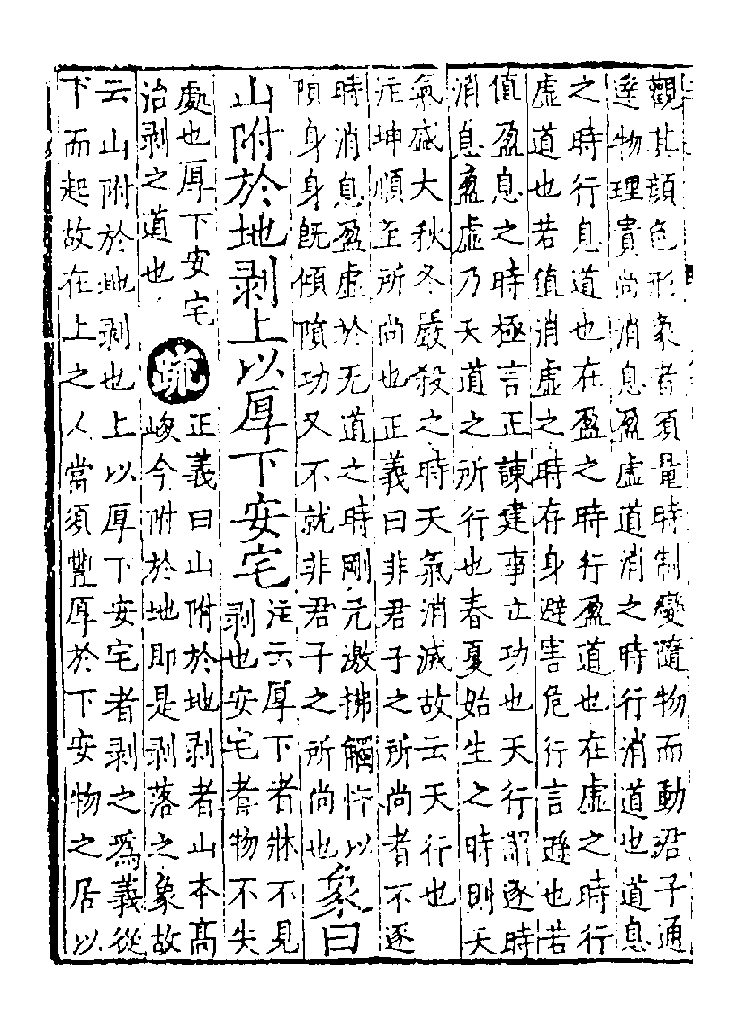 觀其顏色形象者須量時制變隨物而動君子通
達物理貴尚消息盈虛道消之時行消道也道息
之時行息道也在盈之時行盈道也在虛之時行
虛道也若值消虛之時存身避害危行言遜也若
值盈息之時極言正諫建事立功也天行謂逐時
消息盈虛乃天道之所行也春夏始生之時則天
氣盛大秋冬嚴殺之時天氣消滅故云天行也
注坤順至所尚也正義曰非君子之所尚者不逐
時消息盈虛於无道之時剛亢激拂觸忤以
隕身身旣傾隕功又不就非君子之所尚也
象曰
山附於地剥上以厚下安宅
注云厚下者牀不見
剥也安宅者物不失
處也厚下安宅
治剥之道也
疏
正義曰山附於地剥者山本高
峻今附於地即是剥落之象故
云山附於地剥也上以厚下安宅者剥之爲義從
下而起故在上之人當須豐厚於下安物之居以